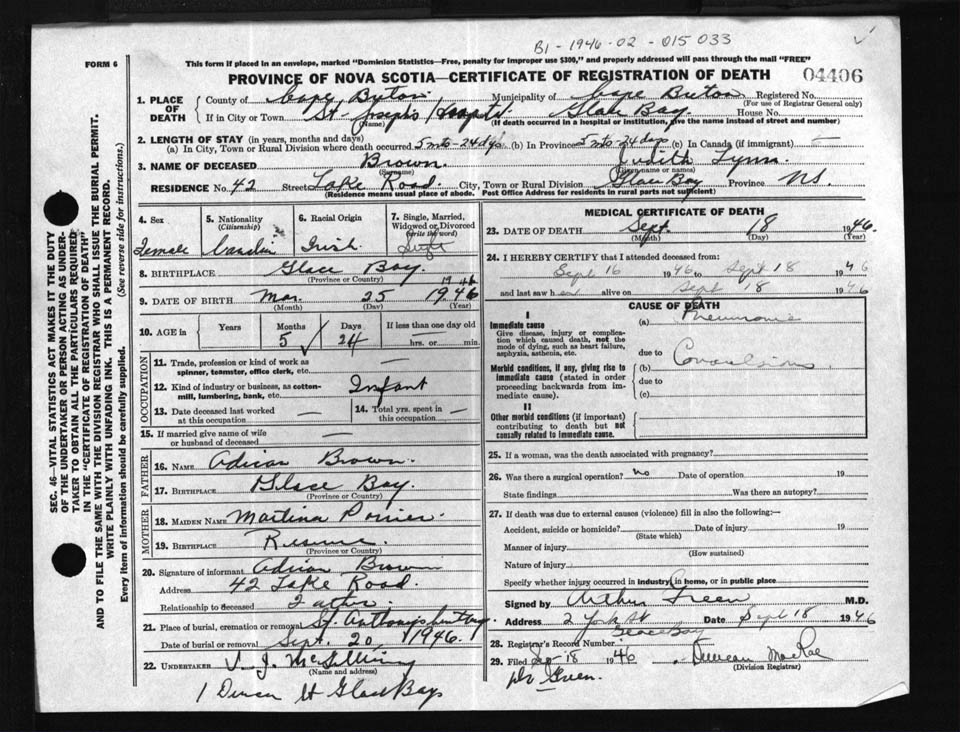 B1-1946-02-015033
FORM 6
This form if placed in an envelope, marked "Dominion Statistics—Free, penalty for improper use $300," and properly addressed will pass through the mail "FREE"
PROVINCE OF NOVA SCOTIA—CERTIFICATE OF REGISTRATION OF DEATH 04406
1. PLACE OF DEATH County of Cape Breton Municipality of Cape Breton Registered No.
(For use of Registrar General only)
If in City or Town St. Joseph's Hospital Glace Bay House No.
(Name) (If death occurred in a hospital or institution, give the name instead of street and number)
2. LENGTH OF STAY (in years, months and days)
(a) In City, Town or Rural Division where death occurred 5 mts-24 dys (b) In Province 5 mts-24 dys (c) In Canada (if immigrant) —
3. NAME OF DECEASED Brown Judith Lynn
(Surname) (Given name or names)
RESIDENCE No. 42 Street Lake Road City, Town or Rural Division Glace Bay Province NS.
(Residence means usual place of abode. Post Office Address for residents in rural parts not sufficient)
4. Sex Female
5. Nationality (Citizenship) Canadian
6. Racial Origin Irish
7. Single, Married, Widowed or Divorced (write the word) Single
8. BIRTHPLACE Glace Bay
(Province or Country)
9. DATE OF BIRTH Mar. 25 1946
(Month) (Day) (Year)
10. AGE in Years Months 5 Days 24 If less than one day old
hrs. or min.
OCCUPATION
11. Trade, profession or kind of work as spinner, teamster, office clerk, etc. —
12. Kind of industry or business, as cotton-mill, lumbering, bank, etc. Infant
13. Date deceased last worked at this occupation —
14. Total yrs. spent in this occupation —
15. If married give name of wife or husband of deceased —
FATHER
16. NAME Adrian Brown
17. BIRTHPLACE Glace Bay
(Province or Country)
MOTHER
18. MAIDEN NAME Martina Poirier
19. BIRTHPLACE Reserve
(Province or Country)
20. Signature of informant Adrian Brown
Address 42 Lake Road
Relationship to deceased Father
21. Place of burial, cremation or removal St. Anthony's
Date of burial or removal Sept. 20 1946
22. UNDERTAKER V. J. McGillivray
(Name and address)
St Glace Bay
MEDICAL CERTIFICATE OF DEATH
23. DATE OF DEATH Sept. 18 1946
(Month) (Day)
24. I HEREBY CERTIFY that I attended deceased from:
Sept 16 1946 to Sept 18 1946
and last saw her alive on Sept 18 1946
CAUSE OF DEATH
I
Immediate cause
Give disease, injury or complication which caused death, not the mode of dying, such as heart failure, asphyxia, asthenia, etc.
(a) Pneumonia
due to
Morbid conditions, if any, giving rise to immediate cause (stated in order proceeding backwards from immediate cause).
(b) Convulsions
due to
(c)
II
Other morbid conditions (if important) contributing to death but not causally related to immediate cause.
25. If a woman, was the death associated with pregnancy?
26. Was there a surgical operation? no Date of operation 19
State findings Was there an autopsy?
27. If death was due to external causes (violence) fill in also the following:—
Accident, suicide or homicide? Date of injury 19
(State which)
Manner of injury
(How sustained)
Nature of injury
Specify whether injury occurred in industry, in home, or in public place
Signed by Arthur Green M.D.
Address 2 York St Date Sept 18 1946
Glace Bay
28. Registrar's Record Number
29. Filed Sep 18 1946 Duncan MacRae
(Division Registrar)
Dr Green.
SEC. 46—VITAL STATISTICS ACT MAKES IT THE DUTY
OF THE UNDERTAKER OR PERSON ACTING AS UNDERTAKER TO OBTAIN ALL THE PARTICULARS REQUIRED
IN THE "CERTIFICATE OF REGISTRATION OF DEATH"
AND TO FILE THE SAME WITH THE DIVISION REGISTRAR WHO SHALL ISSUE THE BURIAL PERMIT.
WRITE PLAINLY WITH UNFADING INK. THIS IS A PERMANENT RECORD.
Every item of information should be carefully supplied. (See reverse side for instructions.)